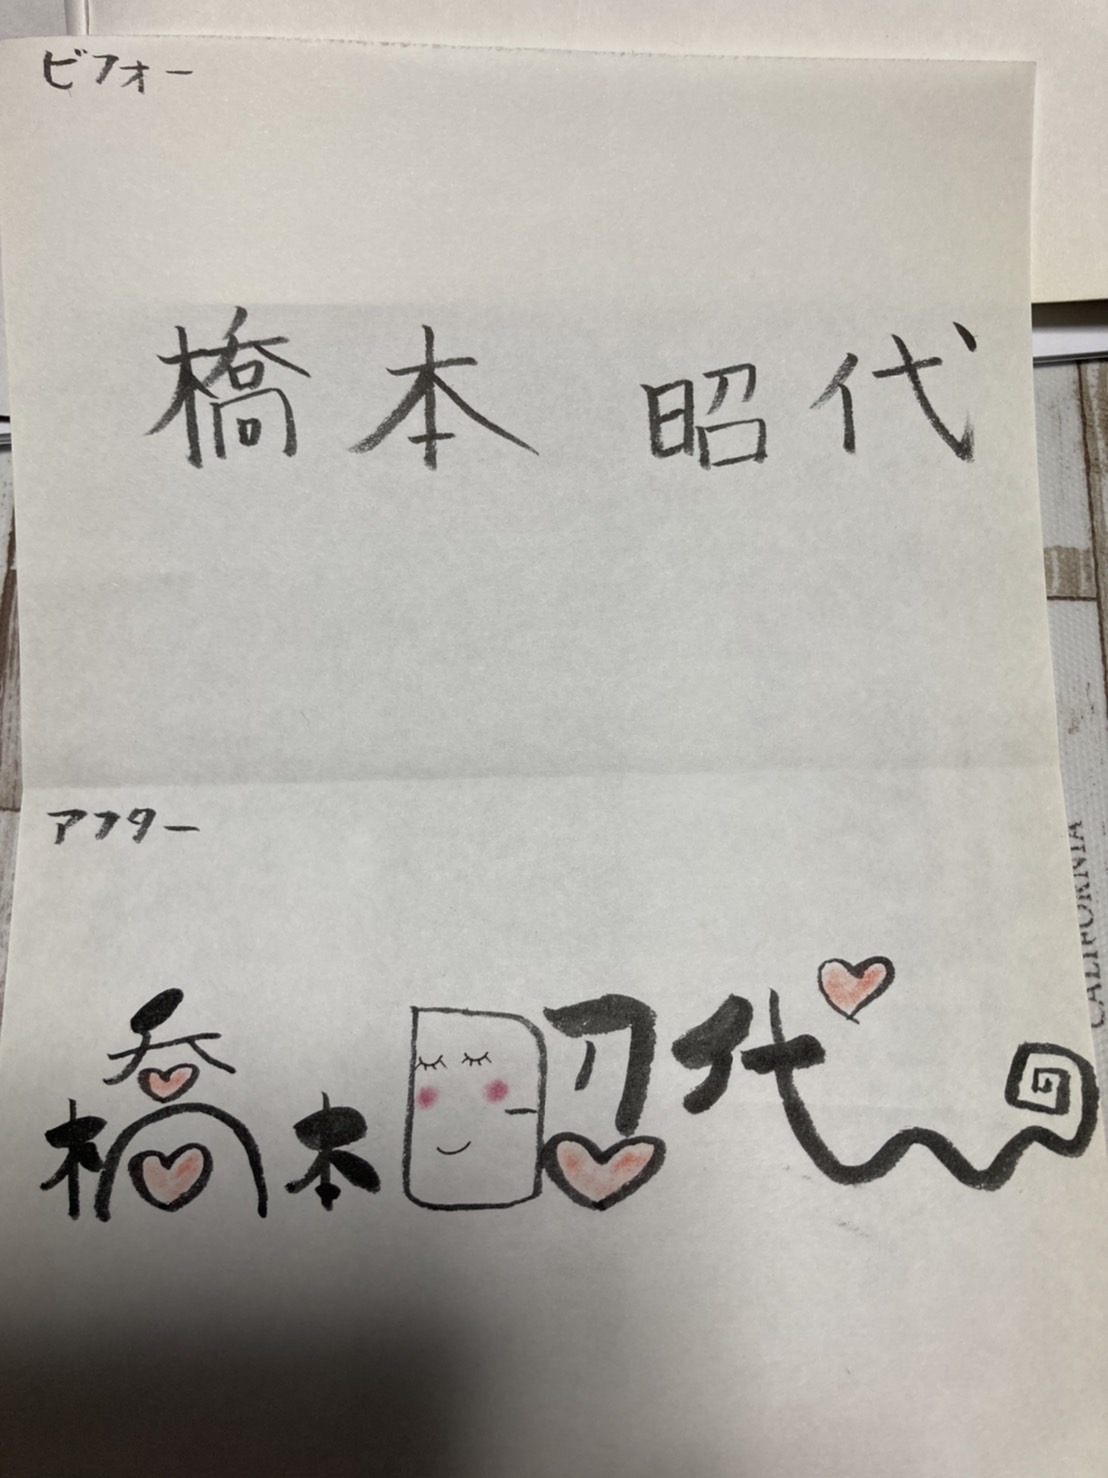 ビフォー
橋本 昭代
アフター
橋本昭代
CALIFORNIA